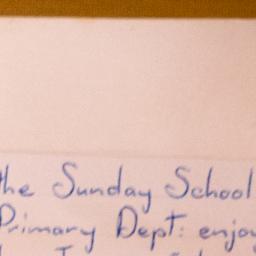 the Sunday School
Primary Dept: enjoy